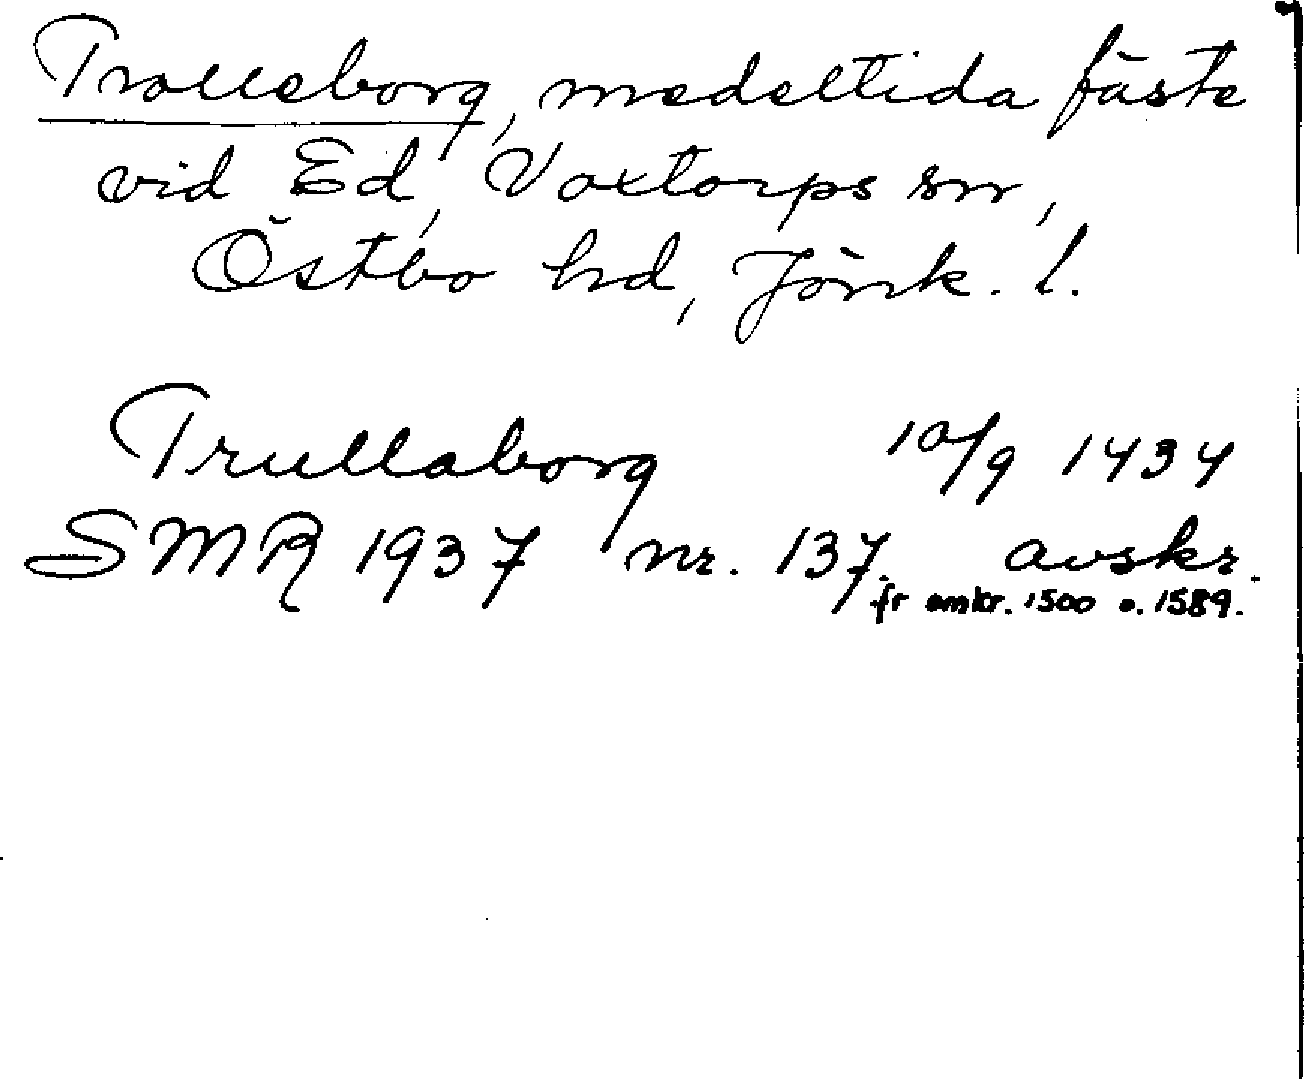 Trolleborg, medeltida fäste
vid Ed, Voxtorps sn,
Östbo hd, Jönk. l.
Trullaborg 10/9 1434
SMR 1937 nr. 137. avskr.
fr omkr. 1500 o. 1589.